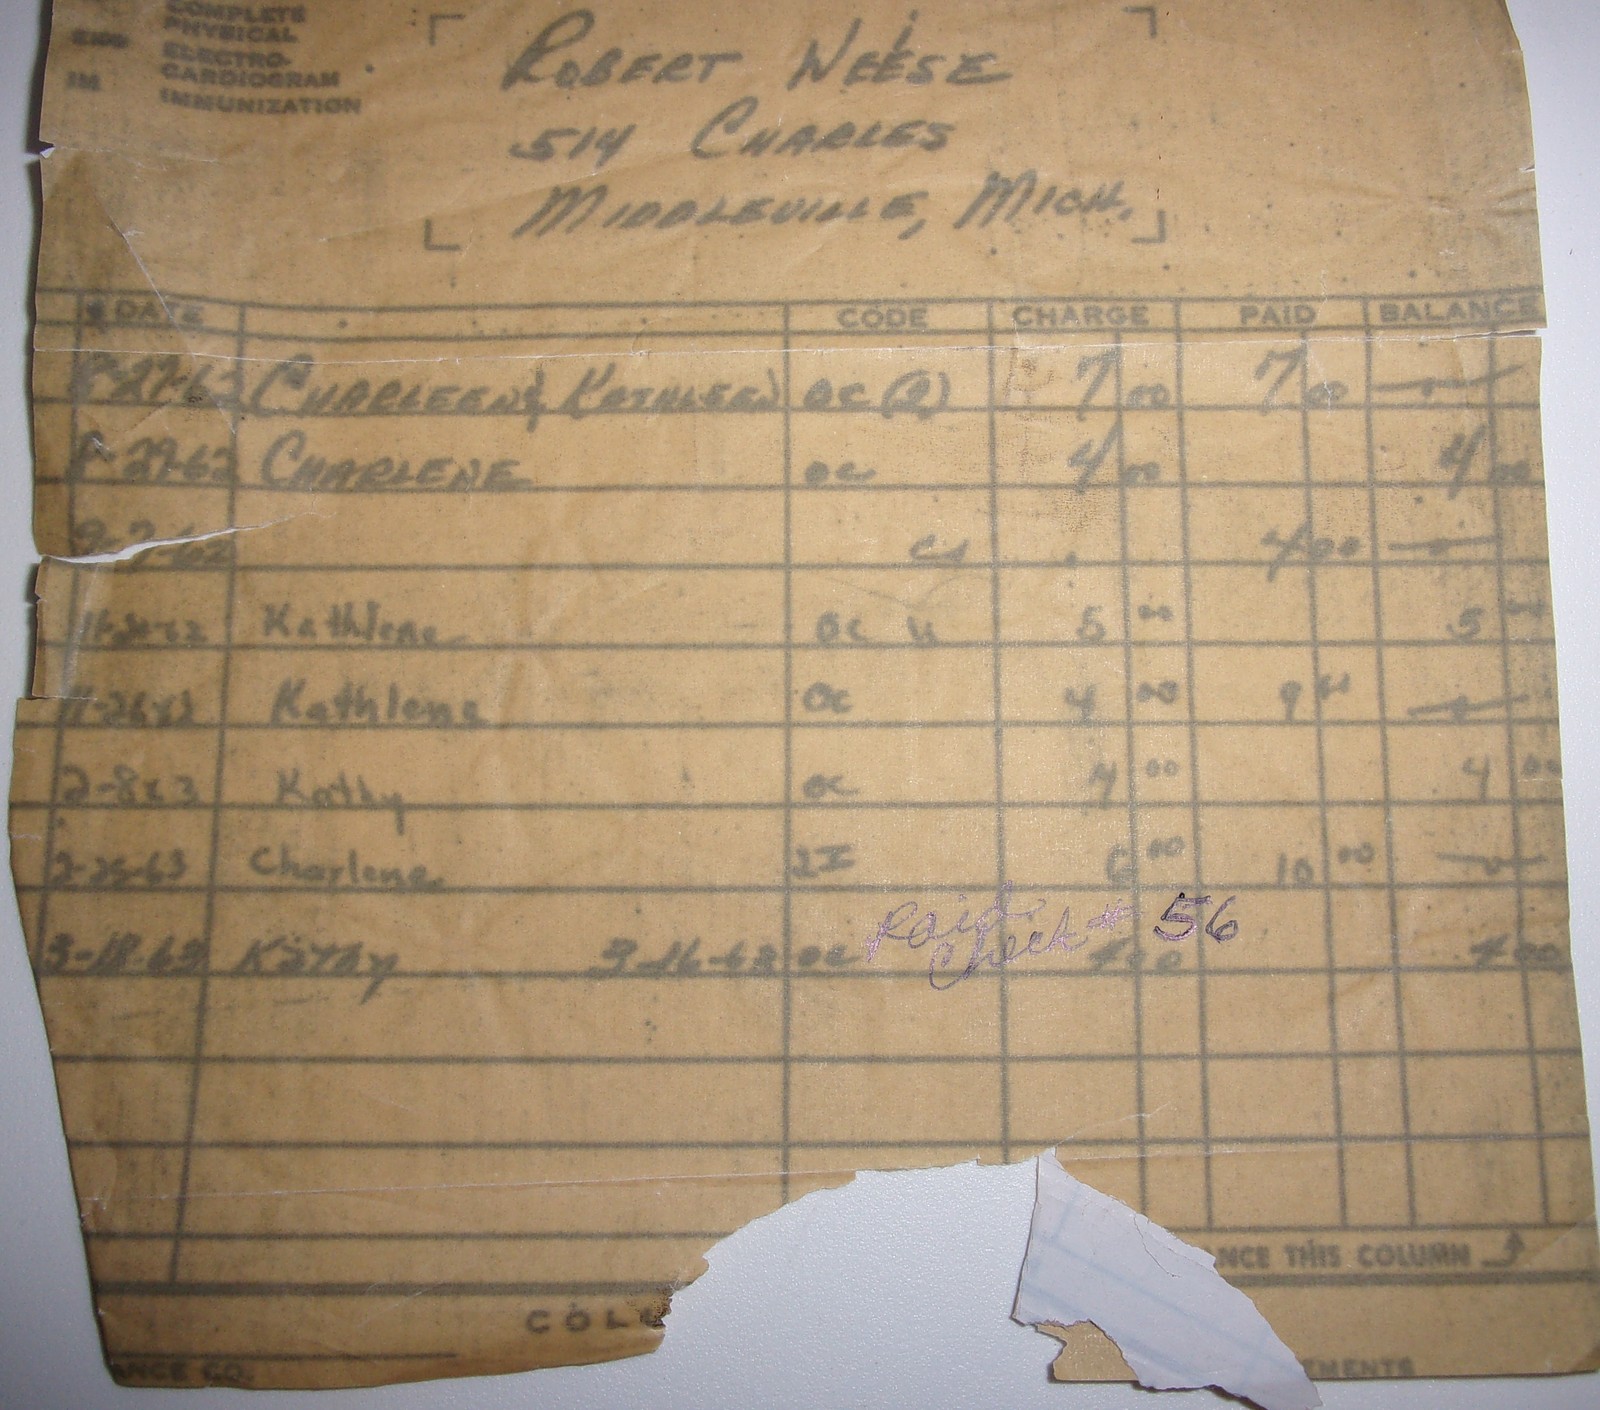 COMPLETE
PHYSICAL
ELECTRO-
CARDIOGRAM
IM IMMUNIZATION
ROBERT NEESE
514 CHARLES
MIDDLEVILLE, MICH.
DATE CODE CHARGE PAID BALANCE
8-27-62 CHARLEEN & KATHLEEN OC (2) 7 00 7 00
8-29-62 CHARLENE OC 4 00 4 00
9-7-62 4 00
Kathlene OC U 5 00 5
11-26-62 Kathlene OC 4 00 9
2-8-63 Kathy OC 4 00 4 00
2-25-63 Charlene 2I 6 00 10 00
Paid
Check # 56
3-18-63 KATHY 3-16-63 OC 4 00 4 00
NCE THIS COLUMN
COLU
ANCE CO. EMENTS